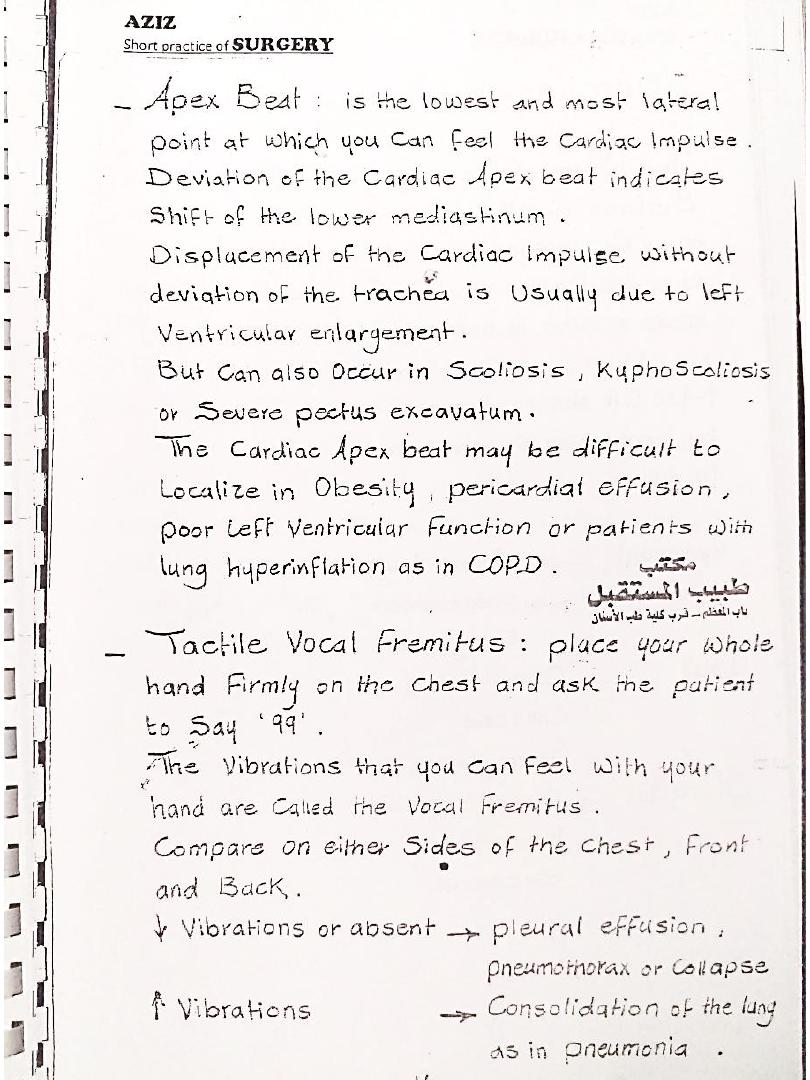 AZIZ
Short practice of SURGERY
– Apex Beat : is the lowest and most lateral
point at which you Can feel the Cardiac Impulse .
Deviation of the Cardiac Apex beat indicates
Shift of the lower mediastinum .
Displacement of the Cardiac Impulse without
deviation of the trachea is Usually due to left
Ventricular enlargement .
But Can also Occur in Scoliosis , KyphoScoliosis
or Severe pectus excavatum .
The Cardiac Apex beat may be difficult to
Localize in Obesity , pericardial effusion ,
poor Left Ventricular Function or patients with
lung hyperinflation as in COPD .
مكتب
طبيب المستقبل
باب المعظم - قرب كلية طب الأسنان
– Tactile Vocal Fremitus : place your whole
hand Firmly on the chest and ask the patient
to Say '99' .
The Vibrations that you Can Feel with your
hand are Called the Vocal Fremitus .
Compare on either Sides of the Chest , Front
and Back .
↓ Vibrations or absent → pleural effusion ,
pneumothorax or Collapse
↑ Vibrations → Consolidation of the lung
as in pneumonia .